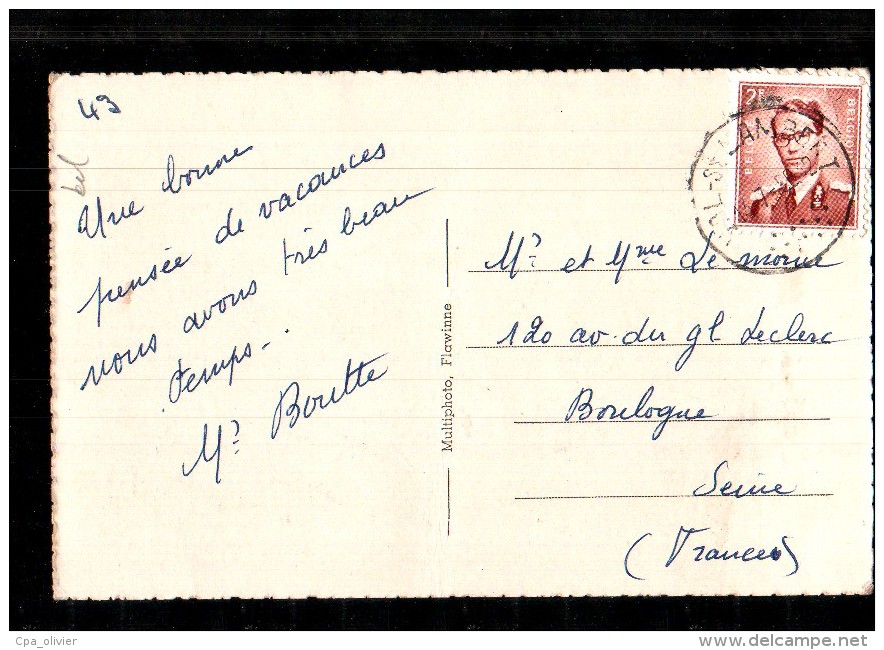 43
bel
Une bonne
pensée de vacances
nous avons très beau
temps-.
Mr Boutte
Multiphoto, Flawinne
2F
BELGIQUE
Mr et Mme Le morne
120 av. du gl Leclerc
Boulogne
Seine
(France)
Cpa_olivier
delcampe.net